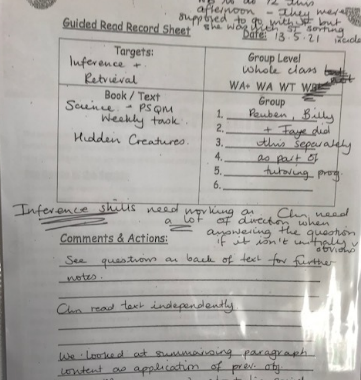 afternoon - They were
supposed to go without but
she was with sorting
Guided Read Record Sheet
Date: 13.5.21
Targets:
Inference +
Retrieval
Group Level
Whole class
WA+ WA WT
Book / Text
Science - PSQM
Weekly task.
Hidden Creatures.
Group
1. Reuben, Billy
2. + Faye did
3. this separately
4. as part of
5. tutoring prog.
6.
Inference skills need working on Chn need
a lot of direction when
answering the question
if it isn't initially
obvious
Comments & Actions:
See questions on back of text for further
notes.
Chn read text independently
We looked at summarising paragraph
content as application of prev. obj.